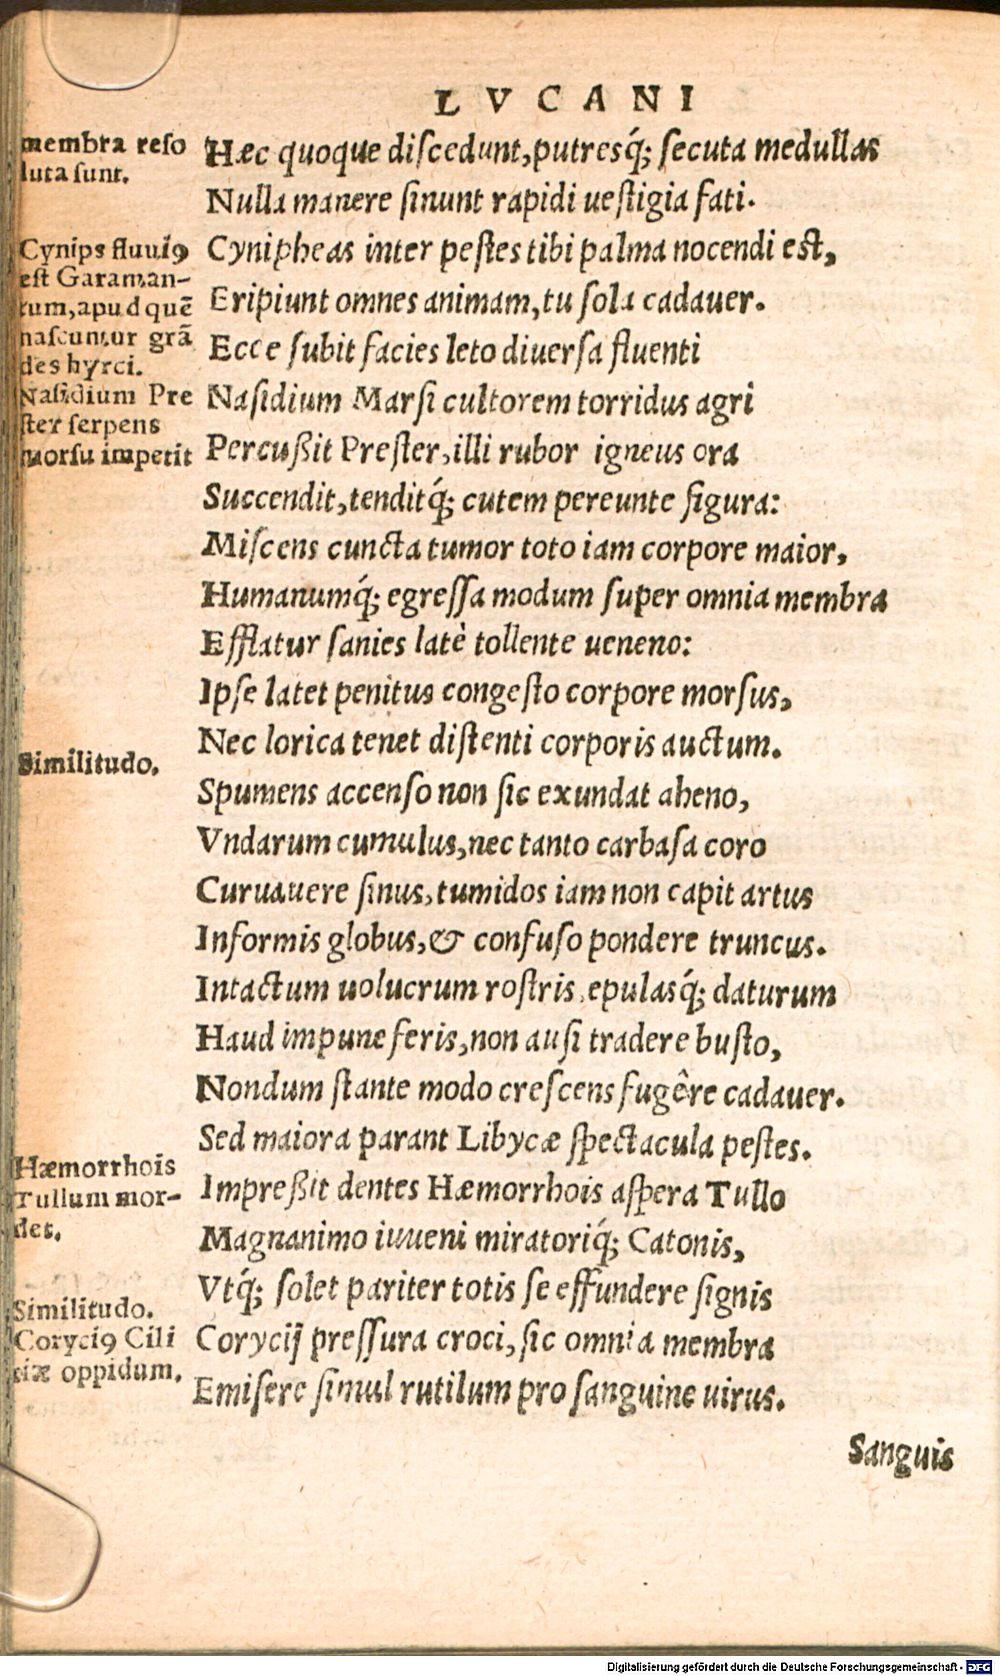 LVCANI
membra reso
luta sunt.
Hæc quoque discedunt, putresq́; secuta medullas
Nulla manere sinunt rapidi uestigia fati.
Cynips fluui9
est Garaman-
tum, apud quẽ
nascuntur grã
des hyrci.
Cynipheas inter pestes tibi palma nocendi est,
Eripiunt omnes animam, tu sola cadauer.
Ecce subit facies leto diuersa fluenti
Nasidium Pre
ster serpens
morsu impetit
Nasidium Marsi cultorem torridus agri
Percußit Prester, illi rubor igneus ora
Succendit, tenditq́; cutem pereunte figura:
Miscens cuncta tumor toto iam corpore maior,
Humanumq́; egressa modum super omnia membra
Efflatur sanies latè tollente ueneno:
Ipse latet penitus congesto corpore morsus,
Nec lorica tenet distenti corporis auctum.
Similitudo.
Spumens accenso non sic exundat aheno,
Vndarum cumulus, nec tanto carbasa coro
Curuauere sinus, tumidos iam non capit artus
Informis globus, & confuso pondere truncus.
Intactum uolucrum rostris, epulasq́; daturum
Haud impune feris, non ausi tradere busto,
Nondum stante modo crescens fugêre cadauer.
Sed maiora parant Libycæ spectacula pestes.
Hæmorrhois
Tullum mor-
det.
Impreßit dentes Hæmorrhois aspera Tullo
Magnanimo iuueni miratoriq́; Catonis,
Vtq́; solet pariter totis se effundere signis
Similitudo.
Coryci9 Cili
ciæ oppidum.
Corycij pressura croci, sic omnia membra
Emisere simul rutilum pro sanguine uirus.
Sanguis
Digitalisierung gefördert durch die Deutsche Forschungsgemeinschaft - DFG